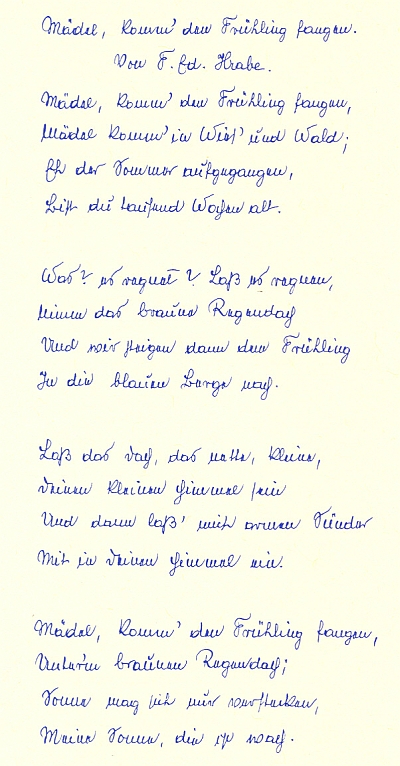 Mädel, komm' den Frühling fangen.
Von F. Ed. Hrabe.
Mädel, komm' den Frühling fangen,
Mädel komm' in Wies' und Wald;
Eh der Sommer aufgegangen,
Bist du tausend Wochen alt.
Was? es regnet? Laß es regnen,
Nimm das braune Regendach
Und wir steigen dann dem Frühling
In die blauen Berge nach.
Laß das Dach, das nette, kleine,
Deinen kleinen Himmel sein
Und dann laß' mich armen Sünder
Mit in deinen Himmel ein.
Mädel, komm' den Frühling fangen,
Unter'm braunen Regendach;
Sonne mag sich nur verstecken,
Meine Sonne, die ist wach.